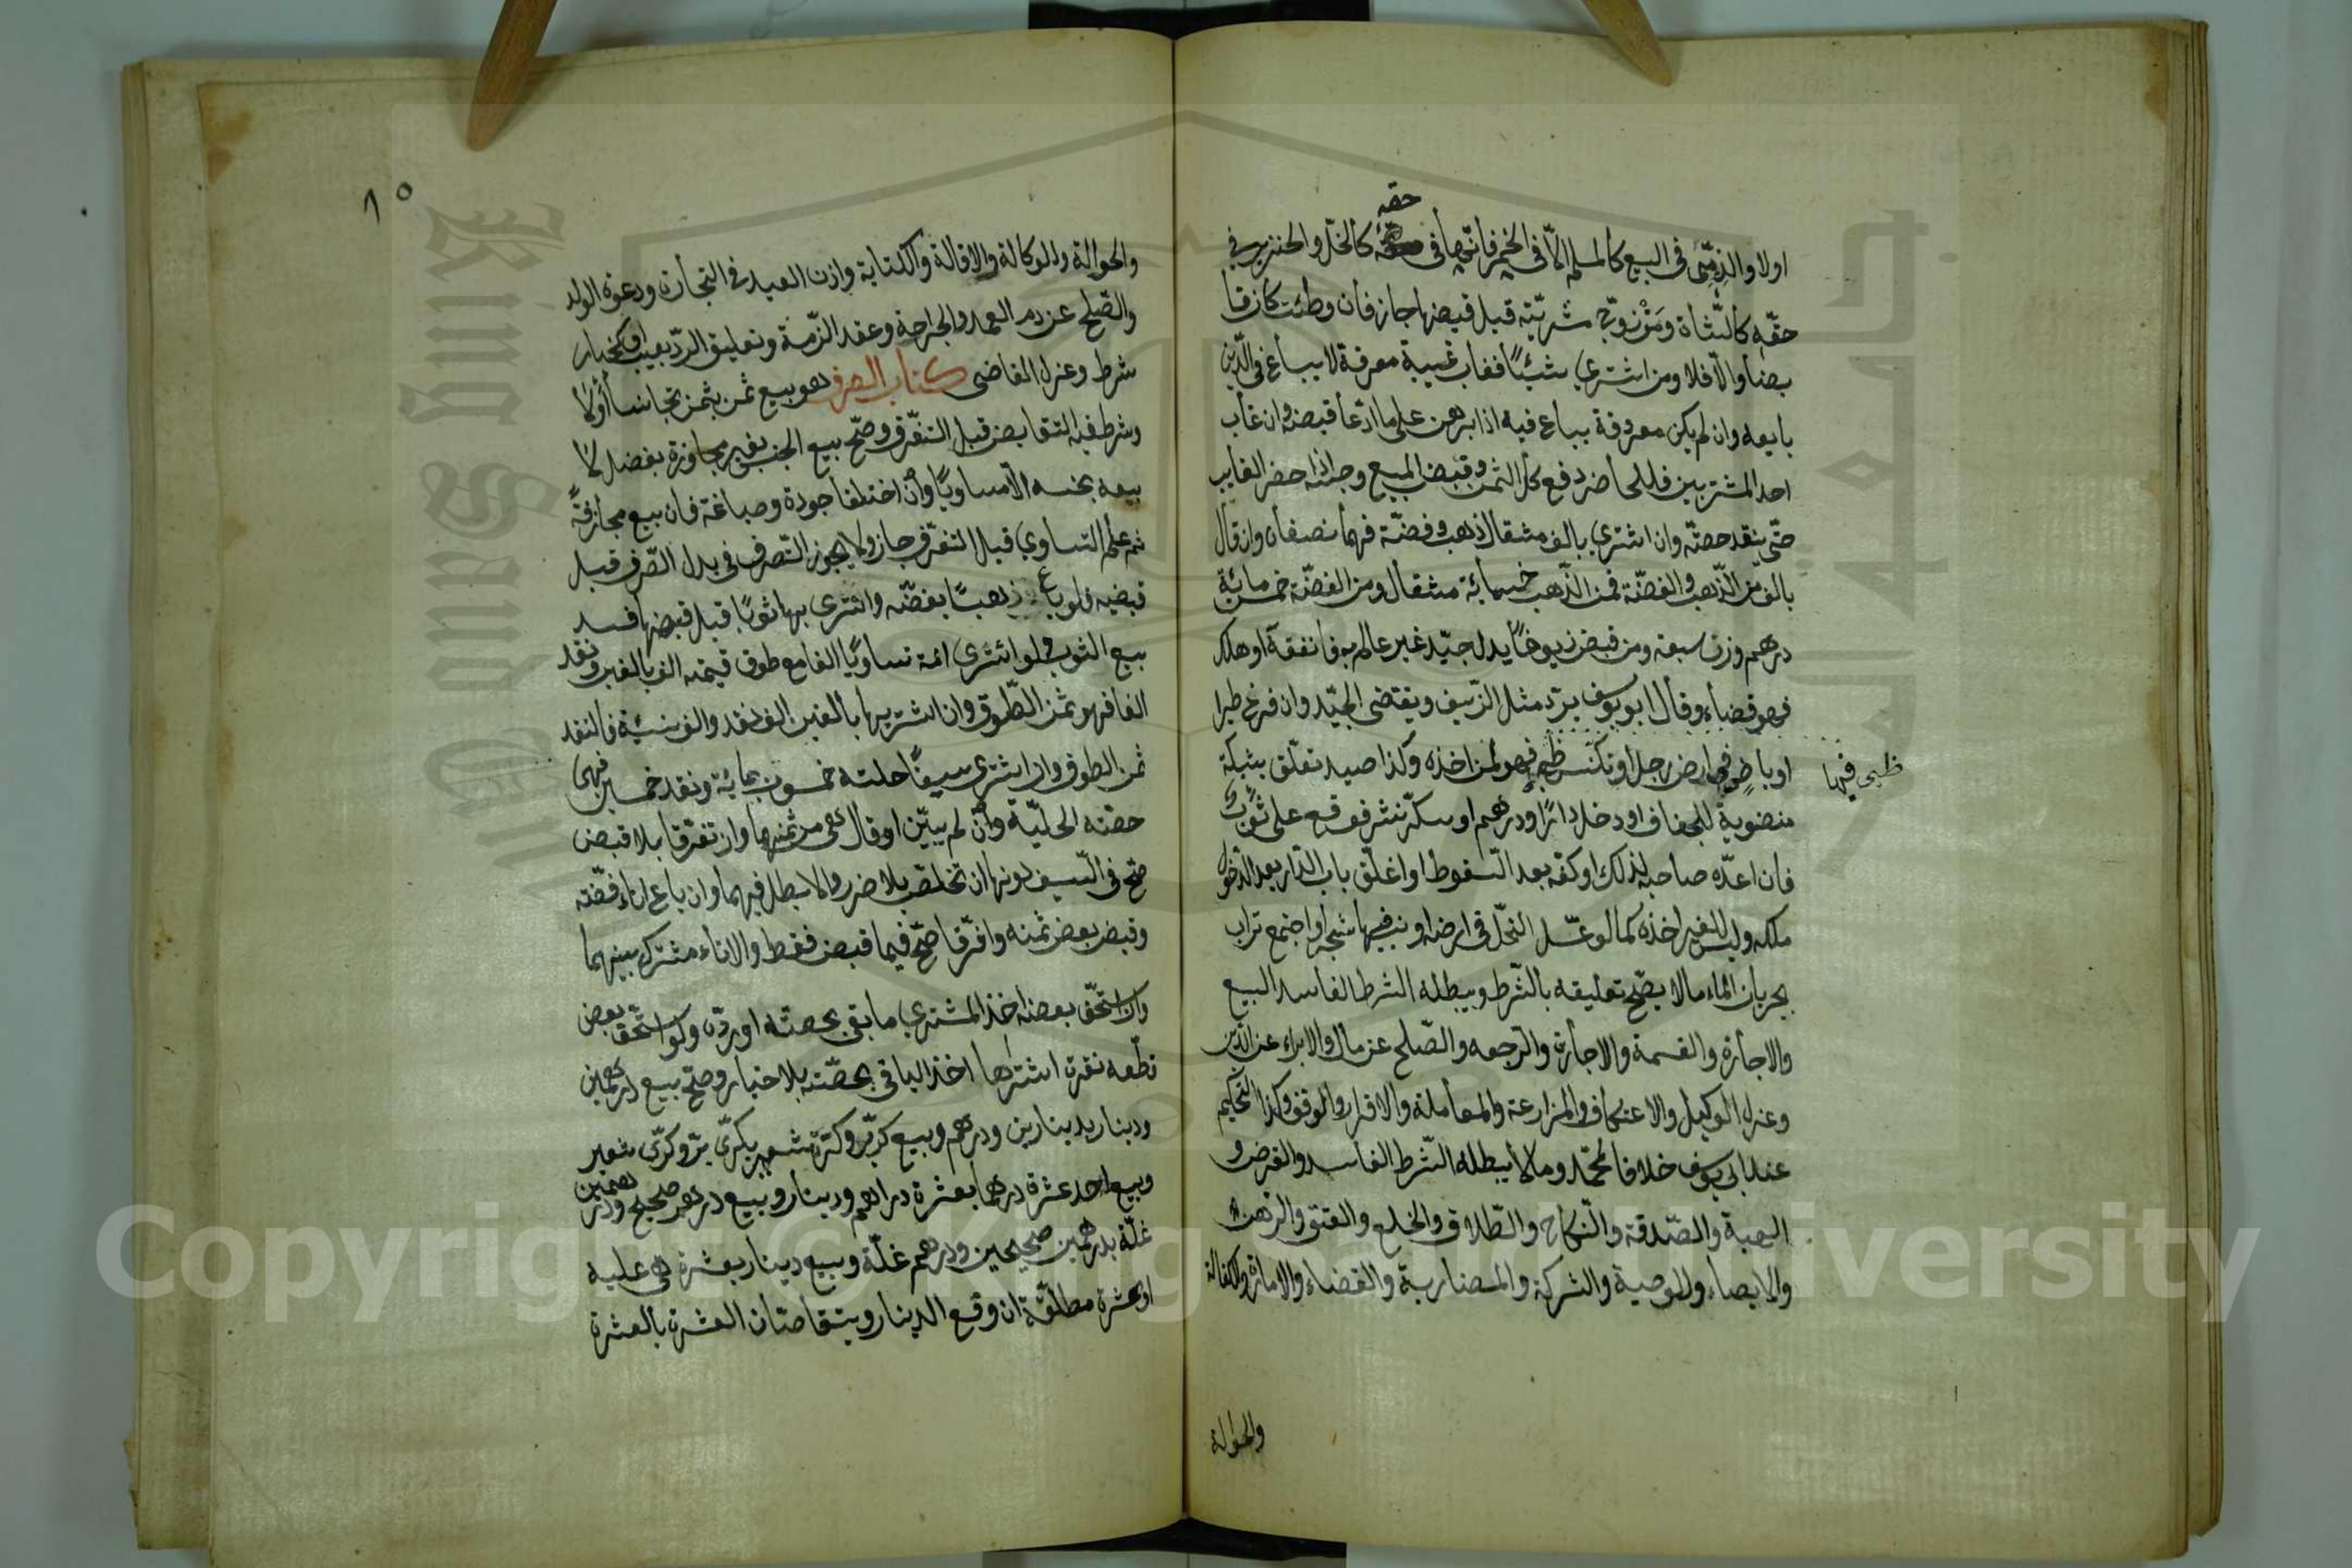 حقه
اولا والذمّى فى البيع كالمسلم الّا فى الخمر فانّها فى حقه كالخلّ والخنزير فى
حقّه كالشّاة ومَنْ زوّج مشريّته قبل قبضها جاز فان وطئت كان قبا
بضا والّا فلا ومن اشترى شئيًا فغاب غيبة معرفة لا يباع فى الدّين
بايعه وان لم يكن معروفة يباع فيه اذا برهن على ما ادّعا قبضه وان غاب
احد المشتريين فللحاضر دفع كل الثمن وقبض المبيع وحبسه اذا حضر الغايب
حتّى ينقد حصّته وان اشترى بالف مثقال ذهب وفضّة فهما نصفان وان قال
بالف من الذّهب والفضّة فمن الذّهب خسمائة مثقال ومن الفضّة خمسمائة
درهم وزن سبعة ومن قبض زيوفًا بدل جيّد غير عالم به فانفقه او هلك
فهو قضاء وقال ابو يوسف يردّ مثل الزّيف ويقتضى الجيّد وان فرخ طير ا
او باض فى ارض رجل او تكنّس ظبى فهو لمن اخذه وكذا صيد تعلّق بشبكة
ظبى فيها
منضوبة للجفاف او دخل دارًا ودرهم او سكّر نثر فوقع على ثوب
فان اعدّه صاحبه لذلك او كفّه بعد السّقوط او اغلق باب الدّار بعد الدّخول
ملكه وليس للغير اخذه كما لو عسّل النّحل فى ارضه او نبت فيها شجر او اجتمع تراب
بجريان الماء ما لا يصّح تعليقه بالشّرط ويبطله الشرط الفاسد البيع
والاجارة والقسمة والاجازة والرّجعه والصّلح عن مال والابراء عن الدّين
وعزل الوكيل والاعتكاف والمزارعة والمعاملة والاقرار والوقف وكذا التحكيم
عند ابى يوسف خلافا لمحمّد وما لا يبطله الشّرط الفاسد والقرض و
الهبة والصّدقة والنّكاح والطّلاق والخلع والعتق والرّهن
والايصاء والوصية والشركة والمضاربة والقضاء والامارة والكفالة
والحوالة
٨٥
والحوالة والوكالة والاقالة والكتابة واذن العبد فى التجارة ودعوة الولد
والصّلح عن دم العمد والجراحة وعقد الذّمة وتعليق الردّ بعيب او بخيار
شرط وعزل القاضى كتاب الصرف هو بيع ثمن بثمن تجانسا أوْلا
وشرط فيه التقابض قبل التفرّق وصحّ بيع الجنس بغير مجازفة بفضل لا
بيعه بجنسه الّا مساويًا وان اختلفا جودة وصياغة فان بيع مجازفةً
ثم علم التساوي قبل التفرّق جاز ولا يجوز التّصرف فى بدل الصّرف قبل
قبضه فلو باع ذهبًا بفضّه واشترى بها ثوبًا قبل قبضها فسد
بيع الثوب فلو اشترى امة تساويًا الفا مع طوق قيمته الف بالفين ونقد
الفا فهو ثمن الطّوق وان اشتريها بالفين الف نقد والف نسئية فالنقد
ثمن الطوق وان اشترى سيفًا حلته خمسون بمائة ونقد خمسين فهى
حصّته الحليّة وان لم يبيّن او قال هى من ثمنهما وان تفرّقا بلا قبض
صّح فى السّيف دونها ان تخلّص بلا ضرر والا بطل فيهما وان باع اناء فضّته
وقبض بعض ثمنه وافترقا صحّ فيما قبض فقط والاناء مشترك بينهما
وان استحّق بعضه اخذ المشترى ما بقى بحصّته او ردّه ولو استّحق بعض
قطعه نقرة اشتراها اخذ الباقى بحصّته بلا خيار وصّح بيع درهمين
ودينار بدينارين ودرهم وبيع كرّبرّ وكرّ شعير بكرّى برّ وكرّى شعير
وبيع احد عشرة درهما بعشرة دراهم ودينار وبيع درهم صحيح ودرهمين
غلّة بدرهمين صحيحين ودرهم غلّة وبيع دينار بعشرة هى عليه
او عشرة مطلقة ان وقع الدينار ويتقاصّان العشرة بالعشرة
Copyright © King Saud University
King Saud University
جامعة الملك سعود